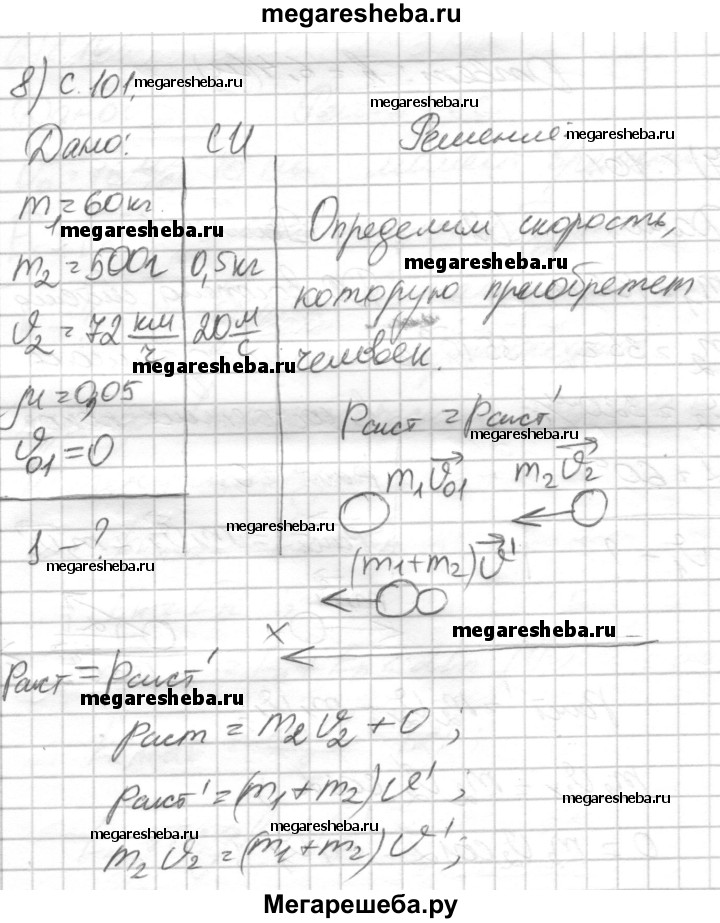 megaresheba.ru
8) с. 101. megaresheba.ru
megaresheba.ru
Дано: СИ Решение megaresheba.ru
m₁=60кг.
megaresheba.ru
m₂=500г 0,5кг
ϑ₂=72 км/ч 20 м/с
megaresheba.ru
μ=0,05
ϑ₀₁=0
S – ?
megaresheba.ru
Определим скорость,
megaresheba.ru
которую приобретет
человек.
Pсист = Pсист'
megaresheba.ru
m₁ϑ₀₁ m₂ϑ₂
megaresheba.ru
(m₁+m₂)ϑ'
megaresheba.ru
x
Pсист = Pсист'
megaresheba.ru
pсист = m₂ϑ₂ + 0 ;
pсист' = (m₁+m₂)ϑ' ;
megaresheba.ru
megaresheba.ru megaresheba.ru
m₂ϑ₂ = (m₁+m₂)ϑ' ;
Мегарешеба.ру